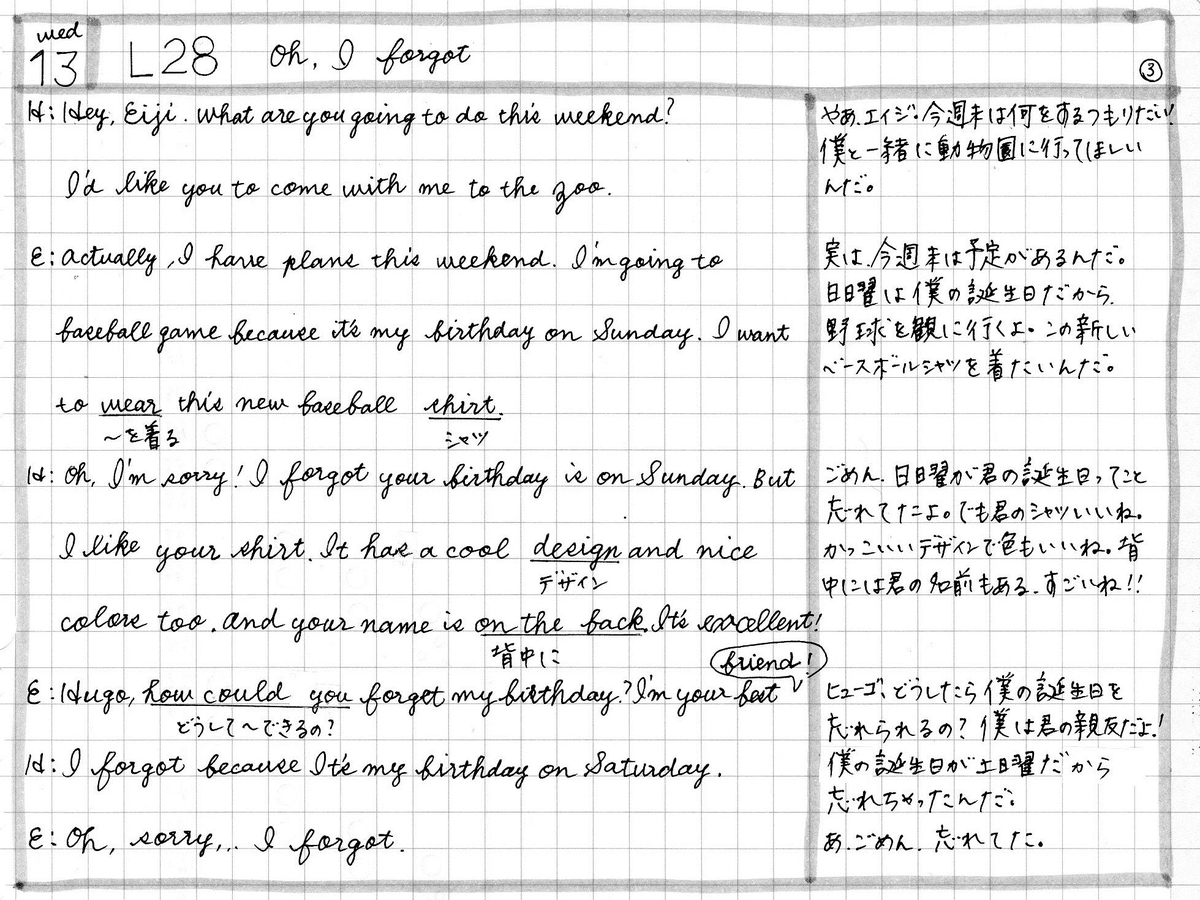 wed
13 L28 Oh, I forgot
③
H: Hey, Eiji. What are you going to do this weekend?
I'd like you to come with me to the zoo.
E: Actually, I have plans this weekend. I'm going to
baseball game because it's my birthday on Sunday. I want
to wear this new baseball shirt.
〜を着る シャツ
H: Oh, I'm sorry! I forgot your birthday is on Sunday. But
I like your shirt. It has a cool design and nice
デザイン
colors too. And your name is on the back. It's excellent!
背中に
friend!
E: Hugo, how could you forget my birthday? I'm your best
どうして〜できるの?
H: I forgot because It's my birthday on Saturday.
E: Oh, sorry... I forgot.
やあ、エイジ。今週末は何をするつもりだい?
僕と一緒に動物園に行ってほしい
んだ。
実は、今週末は予定があるんだ。
日曜は僕の誕生日だから、
野球を観に行くよ。この新しい
ベースボールシャツを着たいんだ。
ごめん、日曜が君の誕生日ってこと
忘れてたよ。でも君のシャツいいね。
かっこいいデザインで色もいいね。背
中には君の名前もある、すごいね!!
ヒューゴ、どうしたら僕の誕生日を
忘れられるの? 僕は君の親友だよ!
僕の誕生日が土曜だから
忘れちゃったんだ。
あ、ごめん、忘れてた。